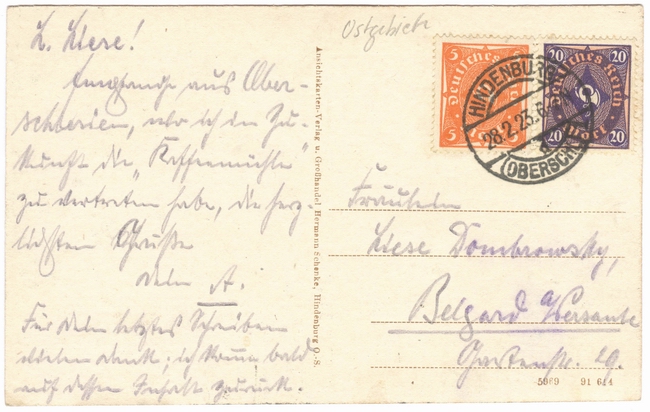 L. Liese!
Empfange aus Ober-
schlesien, wo ich in Zu-
kunft die „Kaffeemühle“
zu vertreten habe, die herz-
lichsten Grüße
Dein A.
Für Dein letztes Schreiben
vielen Dank; ich komme bald
auf dessen Inhalt zurück.
Ansichtskarten-Verlag u. Grosshandel Hermann Schenke, Hindenburg O.-S.
Ostgebiete
5 5
Deutsches Reich
5
20 20
Deutsches Reich
20 Mark 20
HINDENBURG
28.2.23.
(OBERSCHLES)
Fräulein
Liese Dombrowsky,
Belgard a/Persante
Gartenstr. 29.
5969 91 614